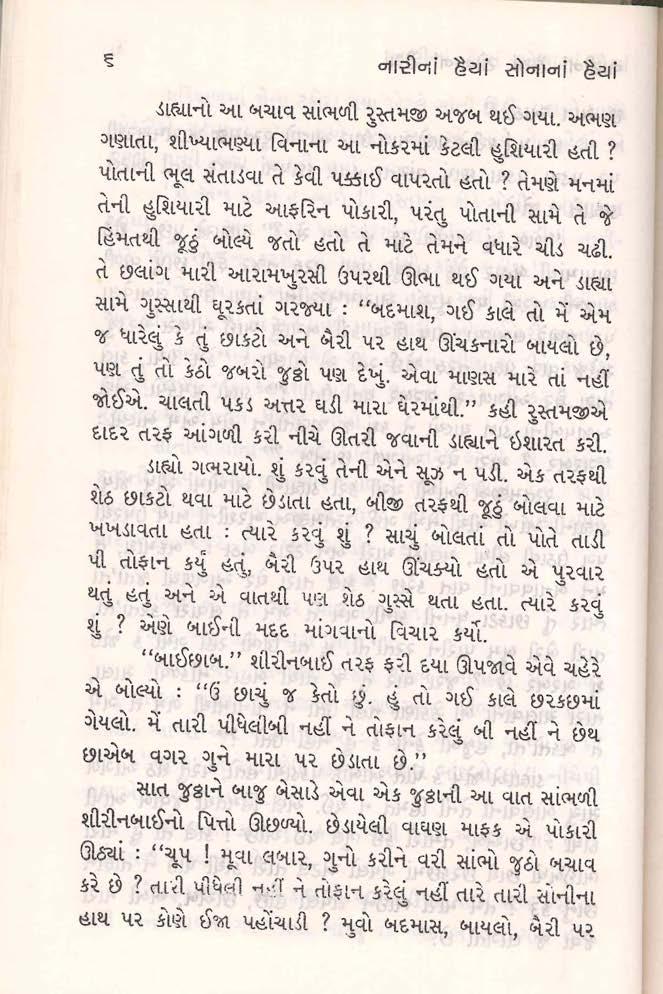 ૬
નારીનાં હૈયાં સોનાનાં હૈયાં
ડાહ્યાનો આ બચાવ સાંભળી રુસ્તમજી અજબ થઈ ગયા. અભણ
ગણાતા, શીખ્યાભણ્યા વિનાના આ નોકરમાં કેટલી હુશિયારી હતી ?
પોતાની ભૂલ સંતાડવા તે કેવી પક્કાઈ વાપરતો હતો ? તેમણે મનમાં
તેની હુશિયારી માટે આફરિન પોકારી, પરંતુ પોતાની સામે તે જે
હિંમતથી જૂઠું બોલ્યે જતો હતો તે માટે તેમને વધારે ચીડ ચઢી.
તે છલાંગ મારી આરામખુરસી ઉપરથી ઊભા થઈ ગયા અને ડાહ્યા
સામે ગુસ્સાથી ઘૂરકતાં ગરજ્યા : “બદમાશ, ગઈ કાલે તો મેં એમ
જ ધારેલું કે તું છાકટો અને બૈરી પર હાથ ઊંચકનારો બાયલો છે,
પણ તું તો કેઠો જબરો જુઠ્ઠો પણ દેખું. એવા માણસ મારે તાં નહીં
જોઈએ. ચાલતી પકડ અત્તર ઘડી મારા ઘેરમાંથી.” કહી રુસ્તમજીએ
દાદર તરફ આંગળી કરી નીચે ઊતરી જવાની ડાહ્યાને ઇશારત કરી.
ડાહ્યો ગભરાયો. શું કરવું તેની એને સૂઝ ન પડી. એક તરફથી
શેઠ છાકટો થવા માટે છેડાતા હતા, બીજી તરફથી જૂઠું બોલવા માટે
ખખડાવતા હતા : ત્યારે કરવું શું ? સાચું બોલતાં તો પોતે તાડી
પી તોફાન કર્યું હતું, બૈરી ઉપર હાથ ઊંચક્યો હતો એ પુરવાર
થતું હતું અને એ વાતથી પણ શેઠ ગુસ્સે થતા હતા. ત્યારે કરવું
શું ? એણે બાઈની મદદ માંગવાનો વિચાર કર્યો.
“બાઈછાબ.” શીરીનબાઈ તરફ ફરી દયા ઊપજાવે એવે ચહેરે
એ બોલ્યો : “ઉં છાચું જ કેતો છું. હું તો ગઈ કાલે છરકછમાં
ગેયલો. મેં તારી પીધેલીબી નહીં ને તોફાન કરેલું બી નહીં ને છેથ
છાએબ વગર ગુને મારા પર છેડાતા છે.”
સાત જુઠ્ઠાને બાજુ બેસાડે એવા એક જુઠ્ઠાની આ વાત સાંભળી
શીરીનબાઈનો પિત્તો ઊછળ્યો. છેડાયેલી વાઘણ માફક એ પોકારી
ઊઠ્યાં : “ચૂપ ! મૂવા લબાર, ગુનો કરીને વરી સાંભો જુઠો બચાવ
કરે છે ? તારી પીધેલી નહીં ને તોફાન કરેલું નહીં તારે તારી સોનીના
હાથ પર કોણે ઈજા પહોંચાડી ? મુવો બદમાસ, બાયલો, બૈરી પર